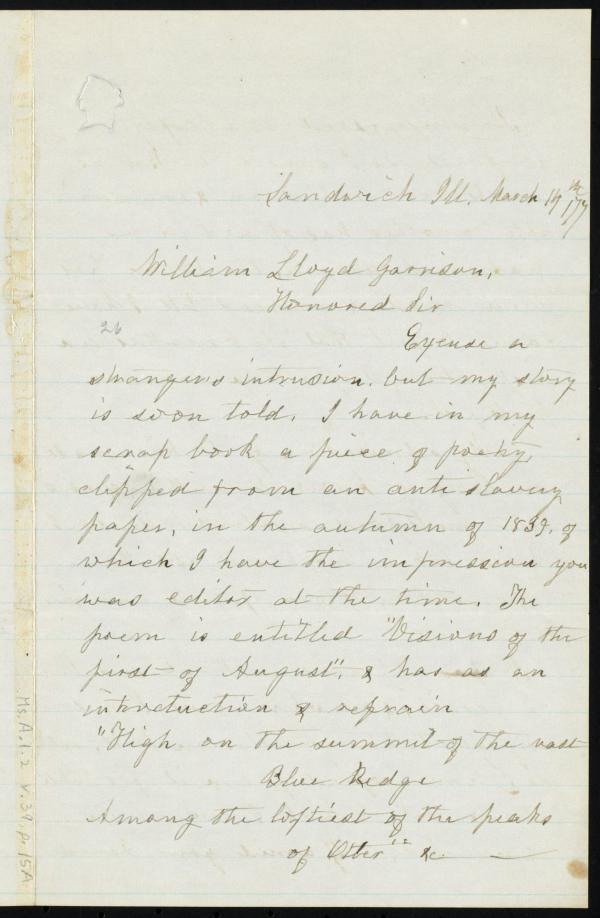 Sandwich Ill. March 14th /77
William Lloyd Garrison,
Honored Sir
26
Excuse a
strangers intrusion. but my story
is soon told. I have in my
scrap book a piece of poetry,
clipped from an anti slavery
paper, in the autumn of 1839, of
which I have the impression you
was editor at the time. The
poem is entitled "Visions of the
first of August", & has as an
introduction & refrain
"High on the summit of the vast
Blue Ridge
Among the loftiest of the peaks
of Otter" &c.
Ms. A. 1. 2 v. 39, p. 15A